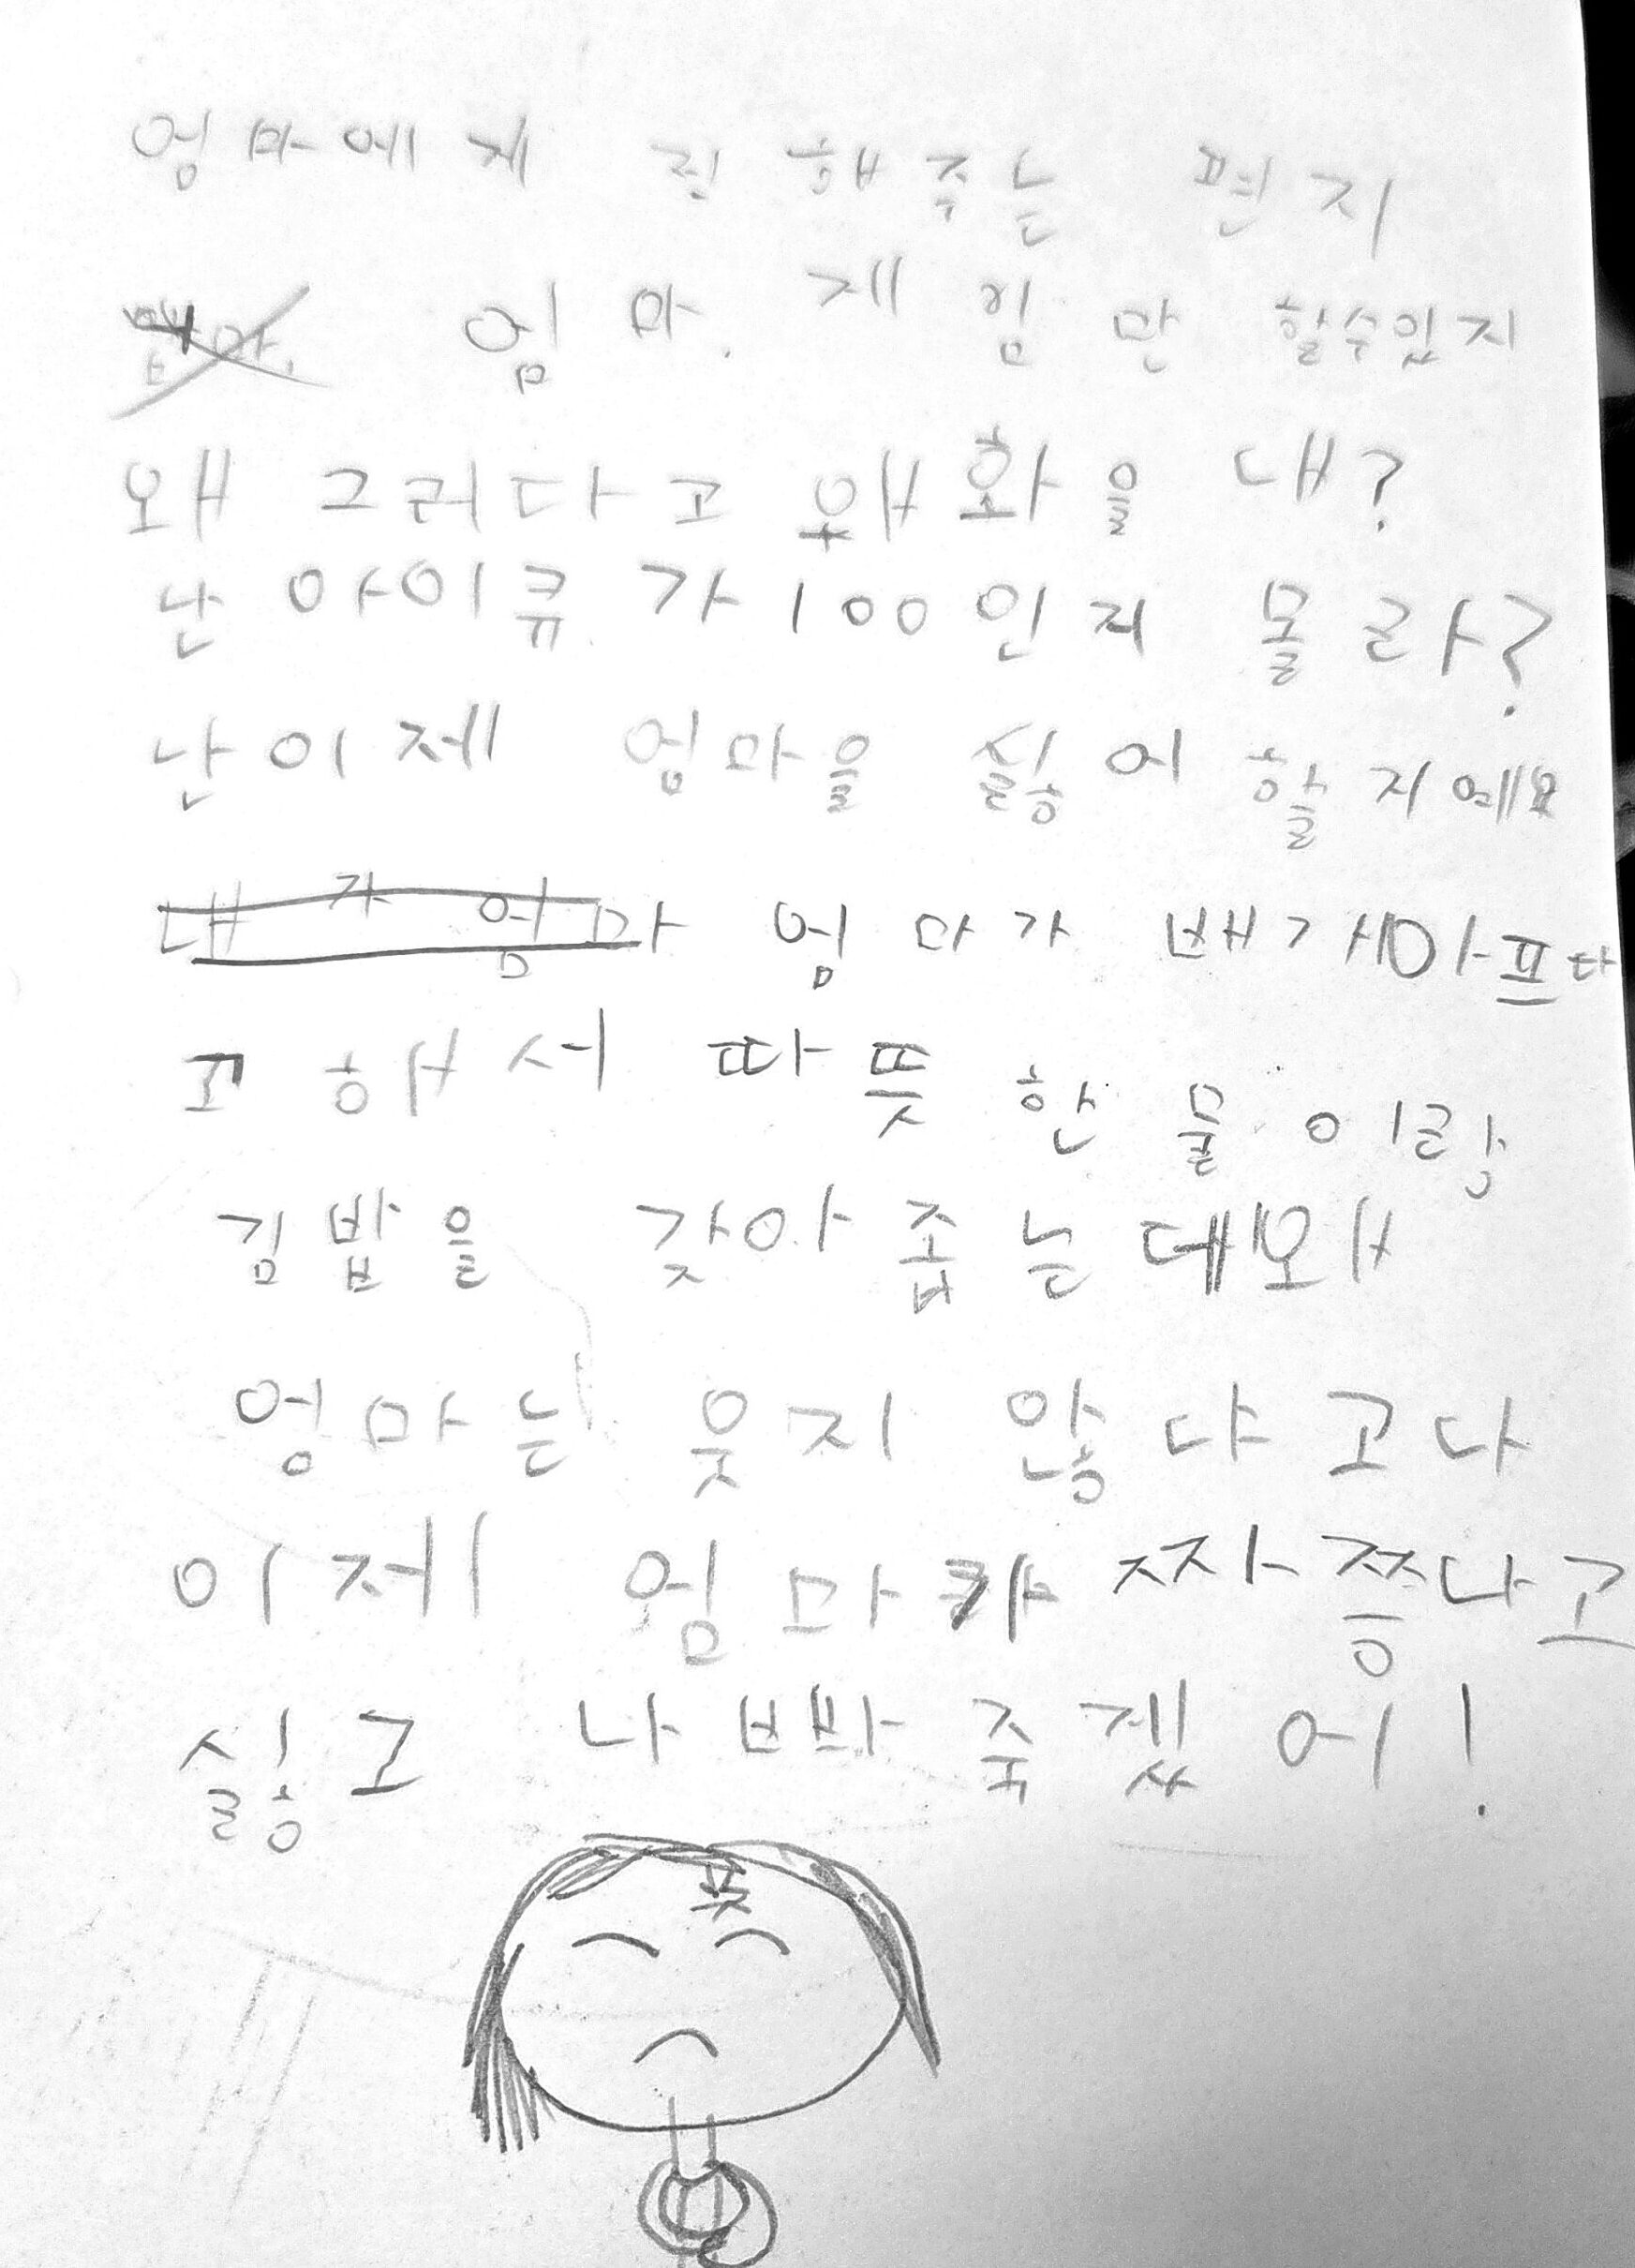 엄마에게 전해주는 편지
엄마. 게임만 할수있지
왜 그러다고 왜 화을 내?
난 아이큐가 100인지 몰라?
난 이제 엄마을 싫어할지예요
엄마가 배게아프다
고 해서 따뜻한 물이랑
김밥을 갖아좁는데왜
엄마는 웃지 않댜고다
이제 엄마가 짜증나고
싫고 나빠 죽겠어!